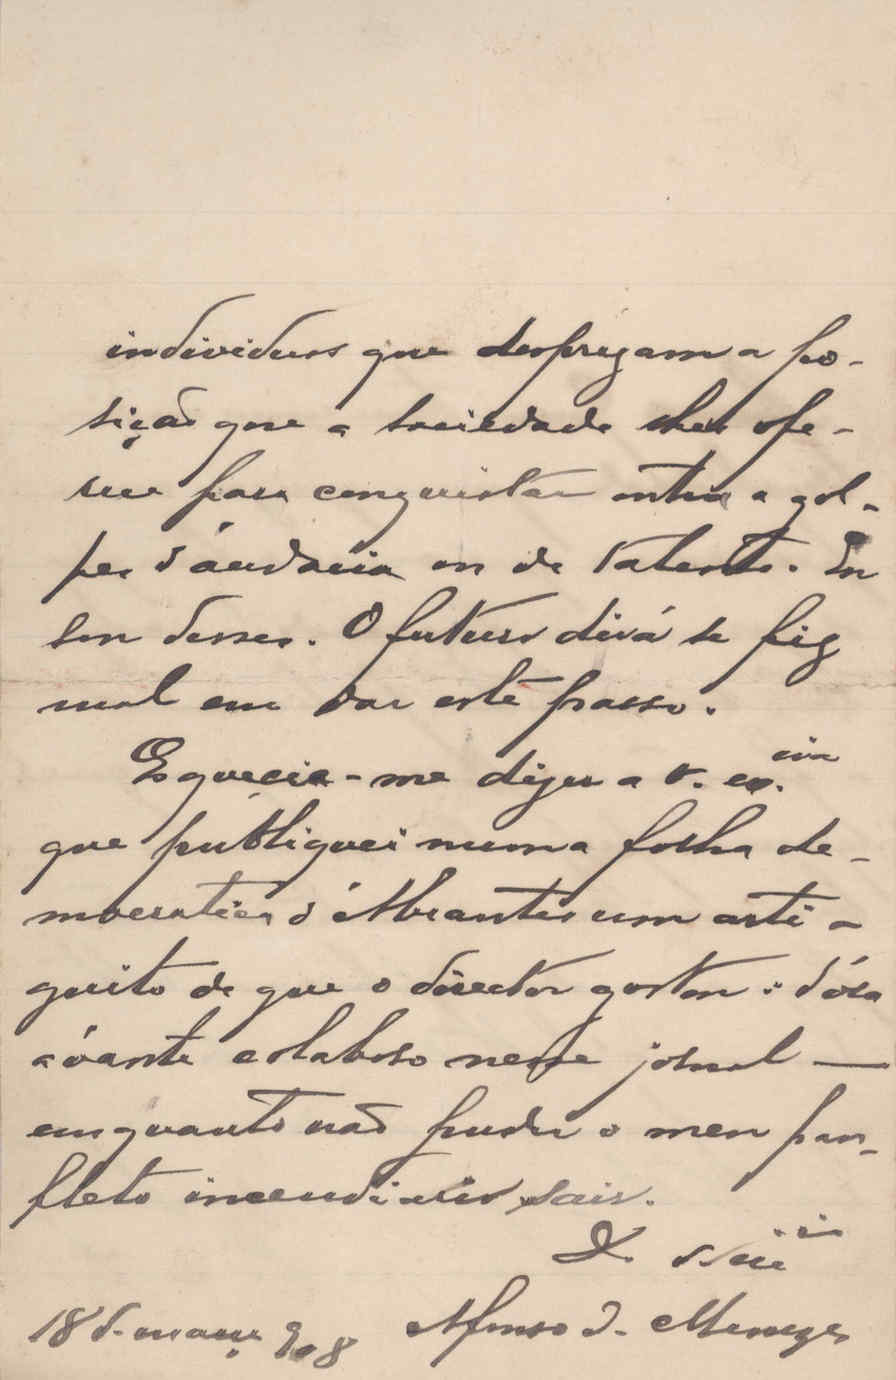 individuos que desprezam a po-
sição que a sociedade lhes ofe-
rece para conquistar outra a gol-
pes d'audacia ou de talento. Eu
sou desses. O futuro dirá se fiz
mal em dar este passo.
Esquecia-me dizer a v. ex.cia
que publiquei numa folha de-
mocratica d'Abrantes um arti-
guito de que o director gostou: d'óra
ávante colaboro nesse jornal —
emquanto não puder o meu pan-
fleto incendiario sair.
De v. 
18 d. março 908 Afonso d. Menezes